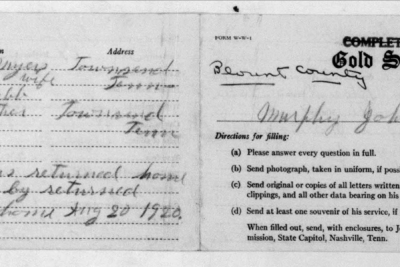 Address
Townsend
wife Tenn
Townsend
Tenn
returned home
by returned
home Aug 20 1920.
FORM W-W-1
COMPLET
Gold S
Blount County
Murphy Joh
Directions for filing:
(a) Please answer every question in full.
(b) Send photograph, taken in uniform, if possi
(c) Send original or copies of all letters written
clippings, and all other data bearing on his
(d) Send at least one souvenir of his service, if
When filled out, send, with enclosures, to Jo
mission, State Capitol, Nashville, Tenn.